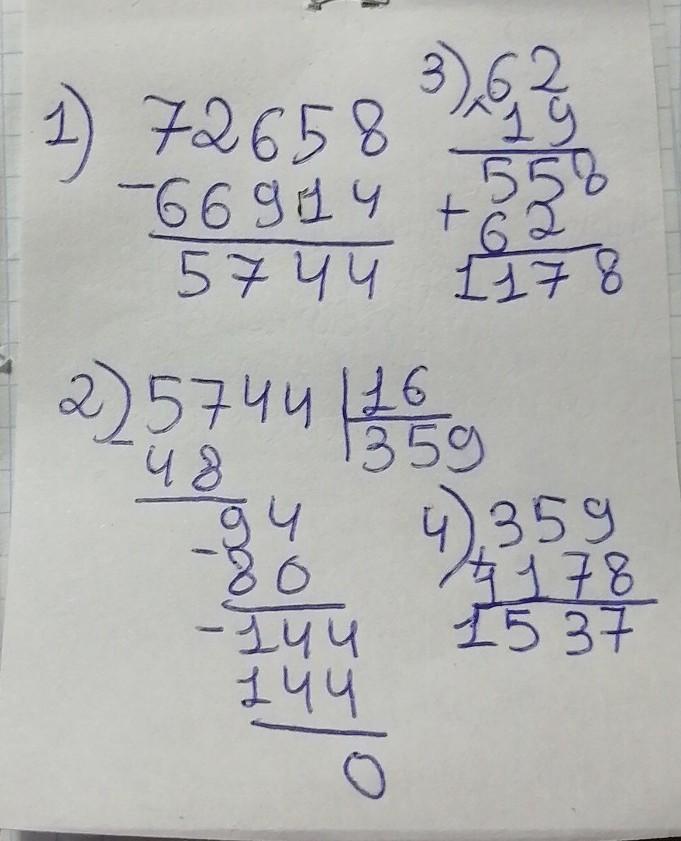 1) 72658
-66914
5744
2) 5744 |16
- 48 359
94
- 80
- 144
144
0
3) 62
× 19
558
+ 62
1178
4) 359
+ 1178
1537